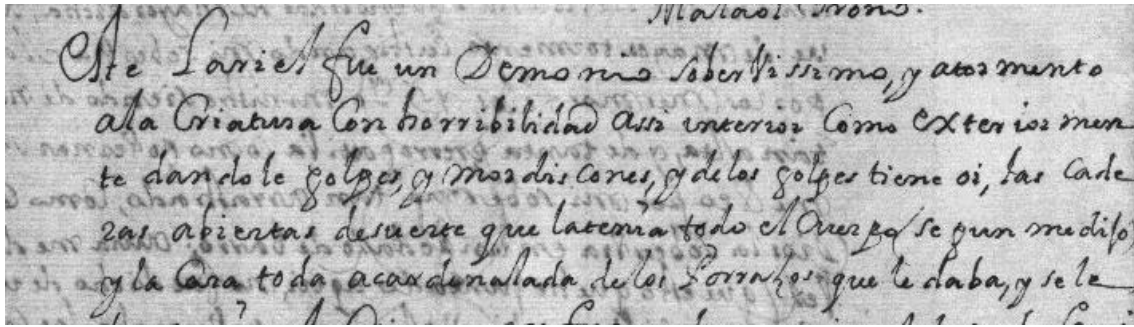 Este Lariel fue un Demonio soberbissimo, y atormento
a la Criatura Con horribilidad assi interior Como exteriormen
te dandole golpes, y mordiscones, y de los golpes tiene oi, las cade
ras abiertas desuerte que latenia todo el Cuerpo segun me dijo
y la Cara toda acardenalada de los Porrazos que le daba, y se le